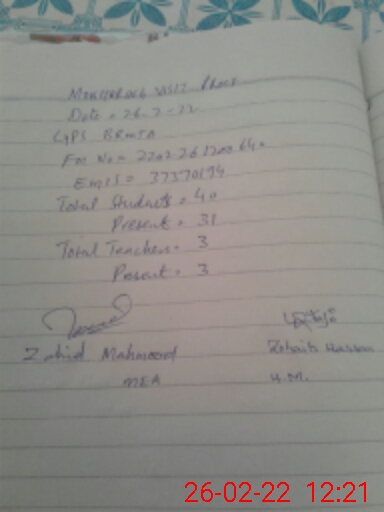 Monitoring Visit Proof
Date = 26-2-22
GPS
Fm No =
EMIS = 37370194
Total Students = 40
Present = 31
Total Teachers = 3
Present = 3
Zahid Mahmood
Zohaib Hassan
MEA
H.M.
26-02-22 12:21